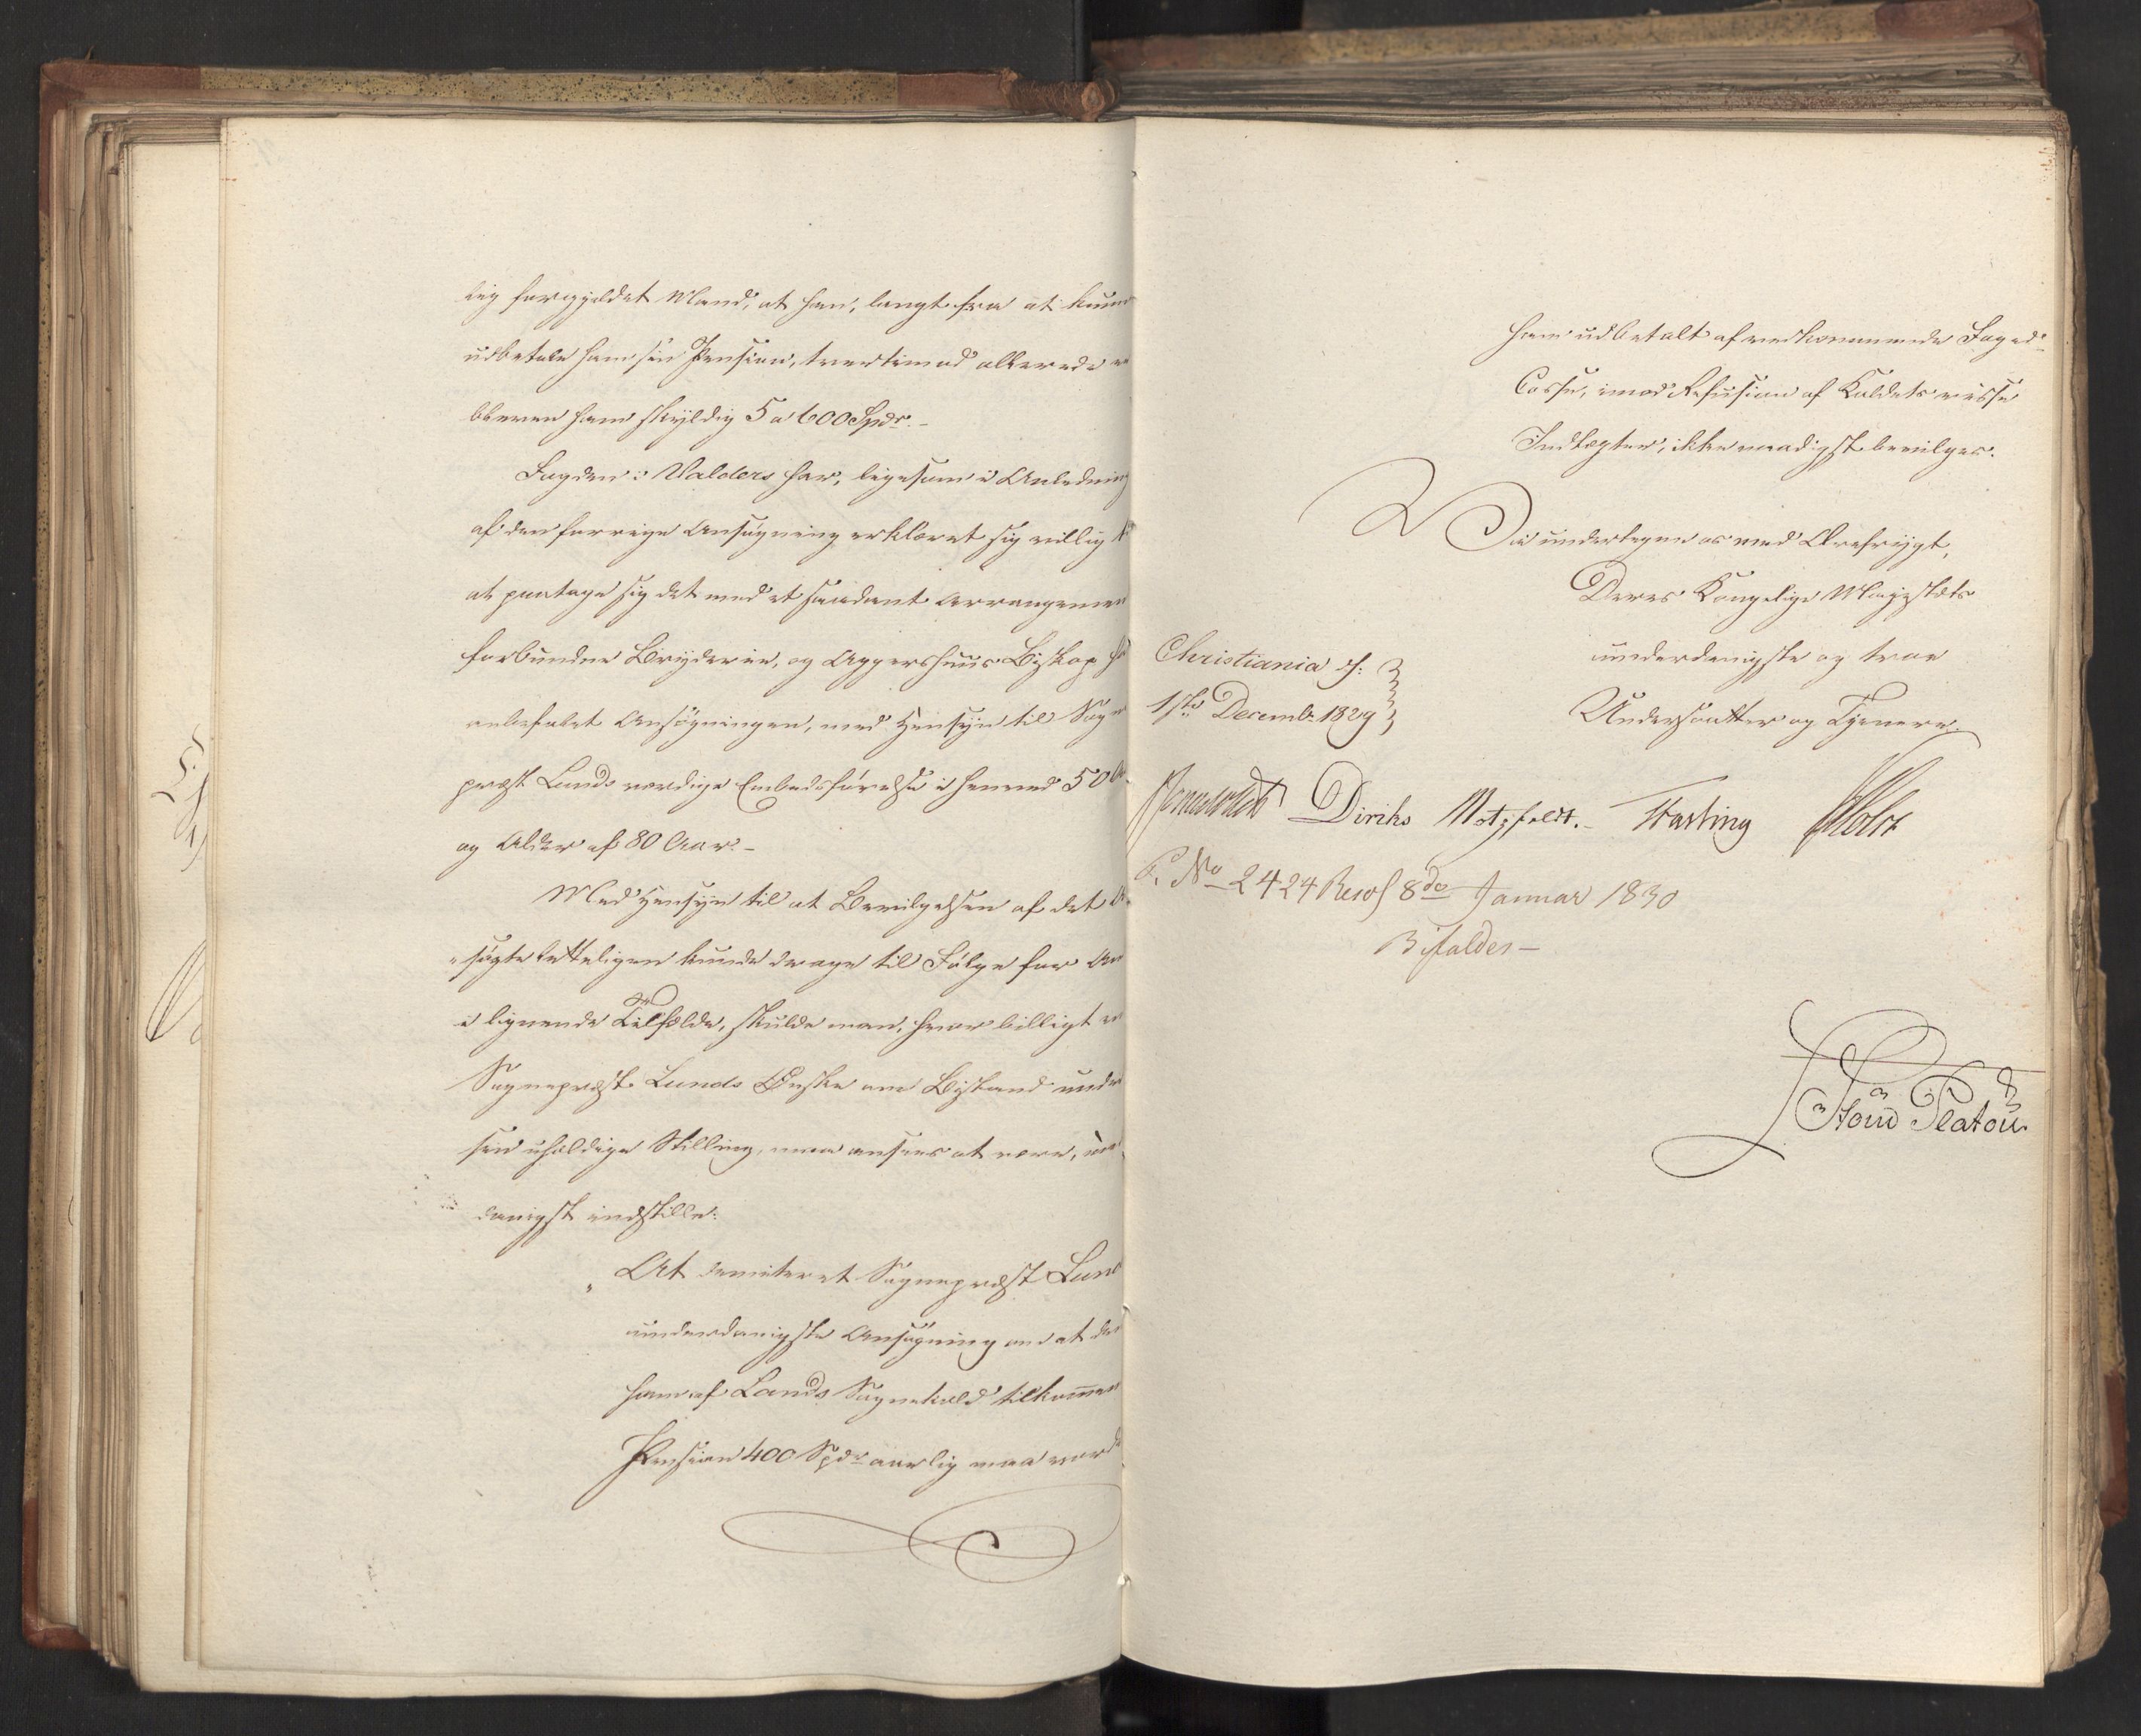 lig forgjeldet Mand, at han, langt fra at kunn
udbetale ham sin Pension, tvertimod allerede e
bleven ham skyldig 5 a 600 Spdr.
Fogden i Valders har, ligesom i Anledning
af den forrige Ansøgning erklæret sig villig t
at paatage sig det med et saadant Arrangemen
forbundne Bryderie, og Aggershuus Biskop h
anbefalet Ansøgningen, med Hensyn til Sogne
præst Lunds værdige Embedsførelse i henved 50 A
og Alder af 80 Aar.
Med Hensyn til at Bevilgelsen af det A
søgte letteligen kunde drage til Følge for An
i lignende Tilfælde, skulde man, hvor billigt en
Sognepræst Lunds Ønske om Bistand under
sin uheldige Stilling, maa ansees at være, un
danigst indstille:
„At demitteret Sognepræst Lund
underdanigste Ansøgning om at den
ham af Lands Sognekald tilkommen
Pension 400 Spdr aarlig maa vorde
ham udbetalt af vedkommende Foged-
Casse, imod Refusion af Kaldets visse
Indtægter, ikke naadigst bevilges.
Vi undertegne os med Ærefrygt,
Deres Kongelige Majestæts
underdanigste og troe
Undersaatter og Tjenere.
Christiania d:
1ste Decemb. 1829
Diriks Motzfeldt. Fasting Holst
P. No 2424 Resol 8de Januar 1830
Bifaldes
Stoud Platou